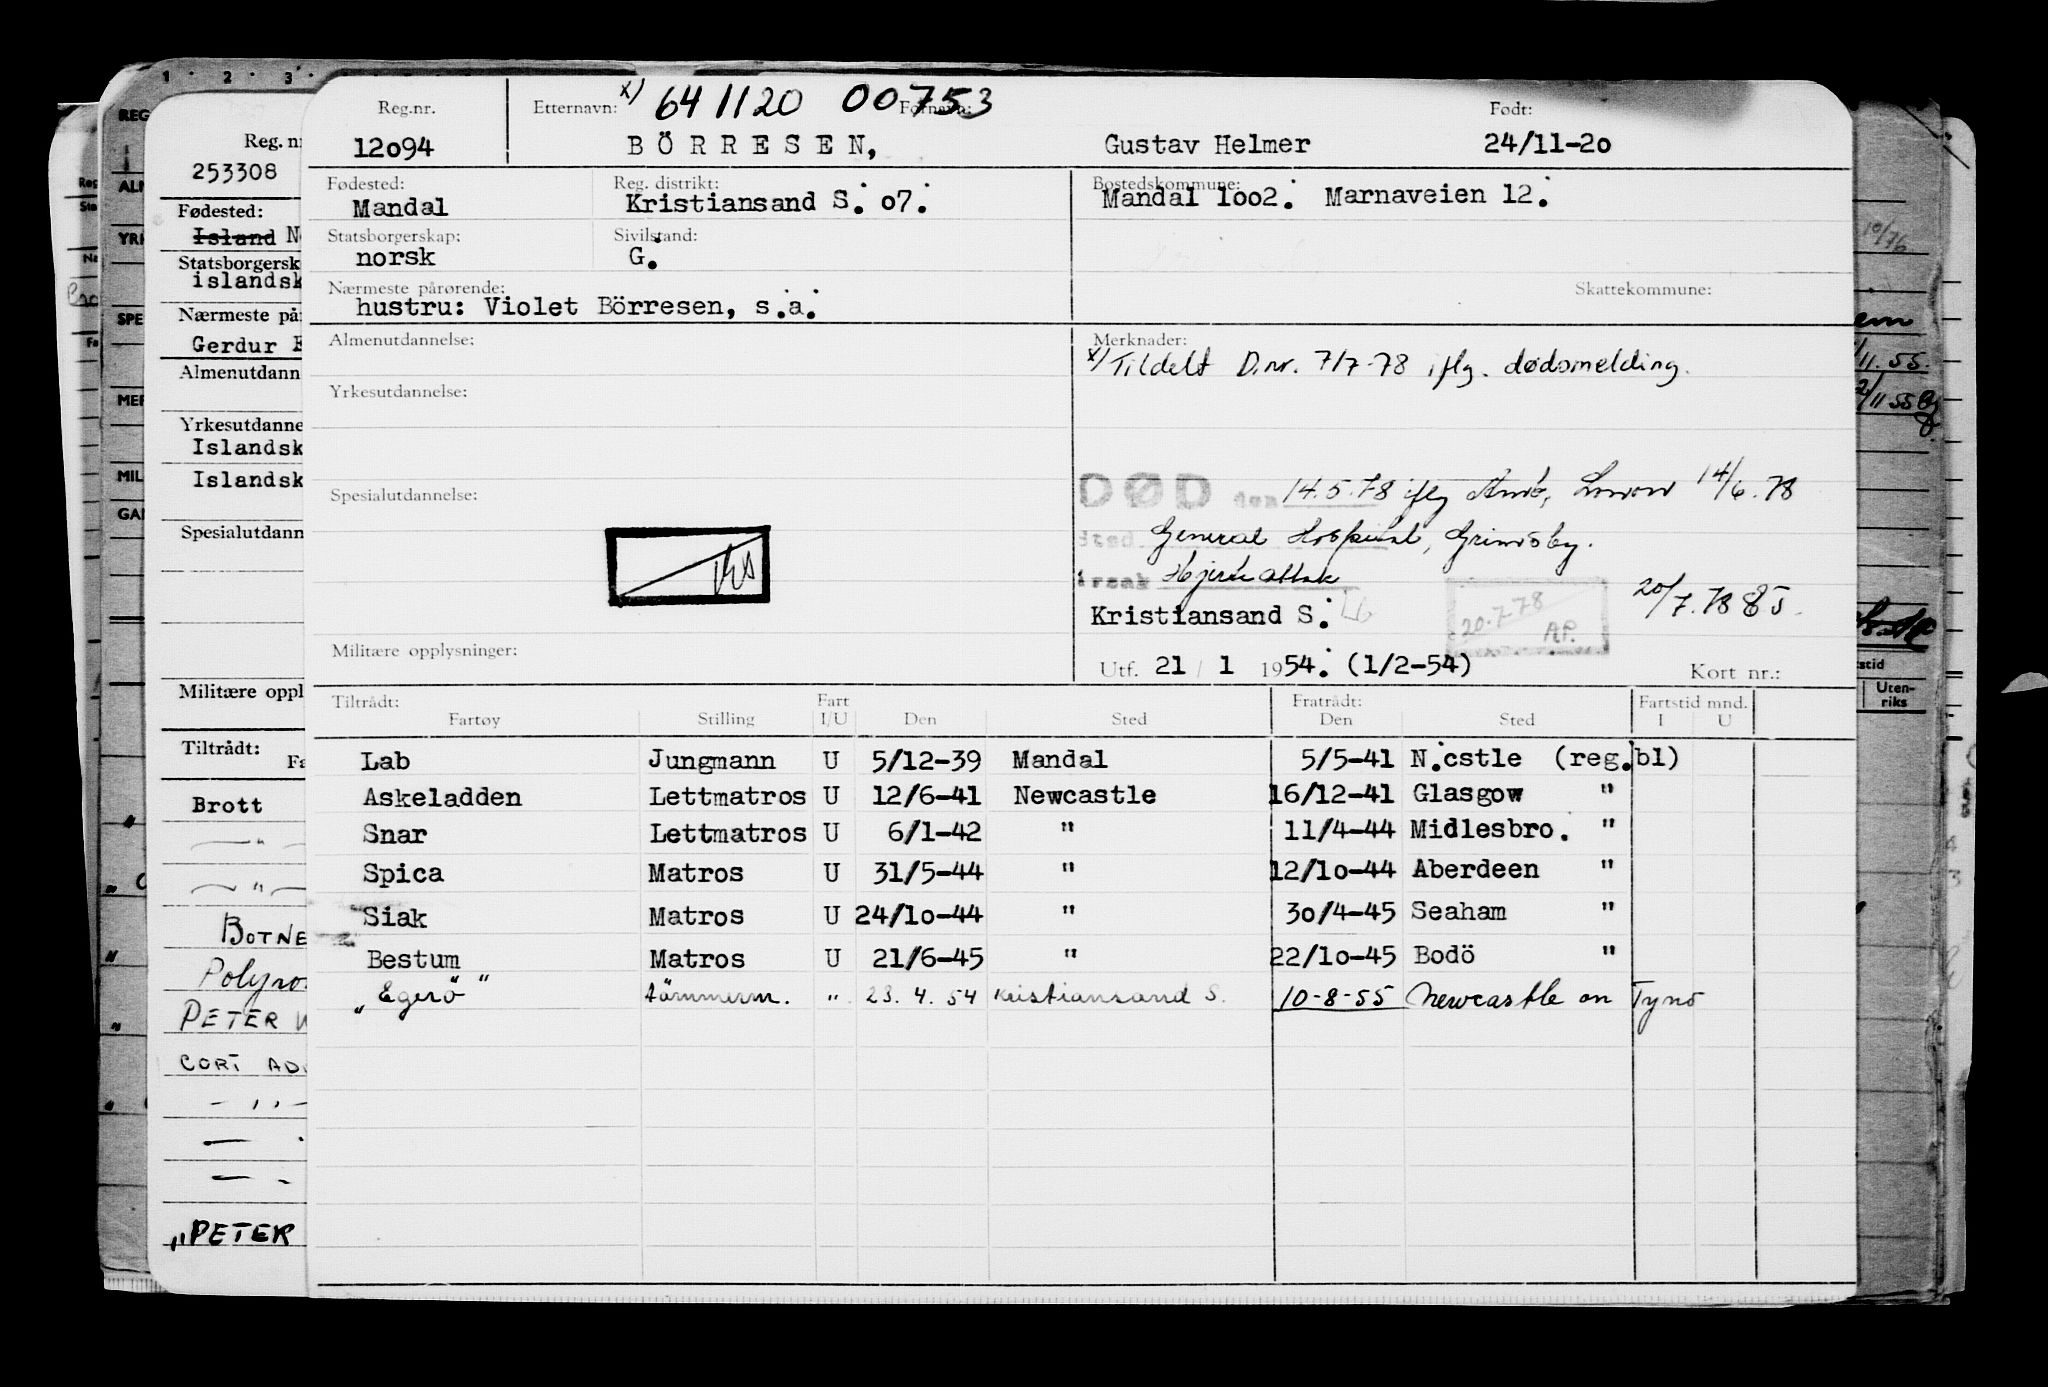 1 · 2 · 3 ·
x) 641120 00753
Reg.nr. Etternavn: Fornavn: Født:
12o94 BÖRRESEN, Gustav Helmer 24/11-2o
Fødested: Reg. distrikt: Bostedskommune:
Mandal Kristiansand S. o7. Mandal 1oo2. Marnaveien 12.
Statsborgerskap: Sivilstand:
norsk G.
Nærmeste pårørende: Skattekommune:
hustru: Violet Börresen, s.a.
Almenutdannelse: Merknader:
x) Tildelt D.nr. 7/7-78 iflg. dødsmelding.
Yrkesutdannelse:
Spesialutdannelse:
DØD den 14.5.78 iflg London 14/6.78
Sted General Hospital, Grimsby.
Årsak Hjerte attak
Kristiansand S. 20-7-78 AP. 20/7.78
Militære opplysninger:
Utf. 21 / 1 1954. (1/2-54) Kort nr.:
Tiltrådt: Fart Fratrådt: Fartstid mnd.
Fartøy Stilling I/U Den Sted Den Sted I U
Lab Jungmann U 5/12-39 Mandal 5/5-41 N.cstle (reg.bl)
Askeladden Lettmatros U 12/6-41 Newcastle 16/12-41 Glasgow "
Snar Lettmatros U 6/1-42 " 11/4-44 Midlesbro. "
Spica Matros U 31/5-44 " 12/1o-44 Aberdeen "
Siak Matros U 24/1o-44 " 3o/4-45 Seaham "
Bestum Matros U 21/6-45 " 22/1o-45 Bodö "
"Egerö" tömmerm. " 23. 4. 54 Kristiansand S. 10-8-55 Newcastle on Tyne
Reg. nr
253308
Fødested:
Island
Statsborgersk
islandsk
Nærmeste på
Gerdur
Almenutdann
Yrkesutdanne
Islandsk
Islandsk
Spesialutdann
Militære oppl
Tiltrådt:
Fa
Brott
— " —
— " —
BOTNE
PETER
CORT AD
"PETER
REG
ALM
YRK
SPE
MER
MIL
GA
10/76
11.55.
2/11 55
stid
Uten-
riks